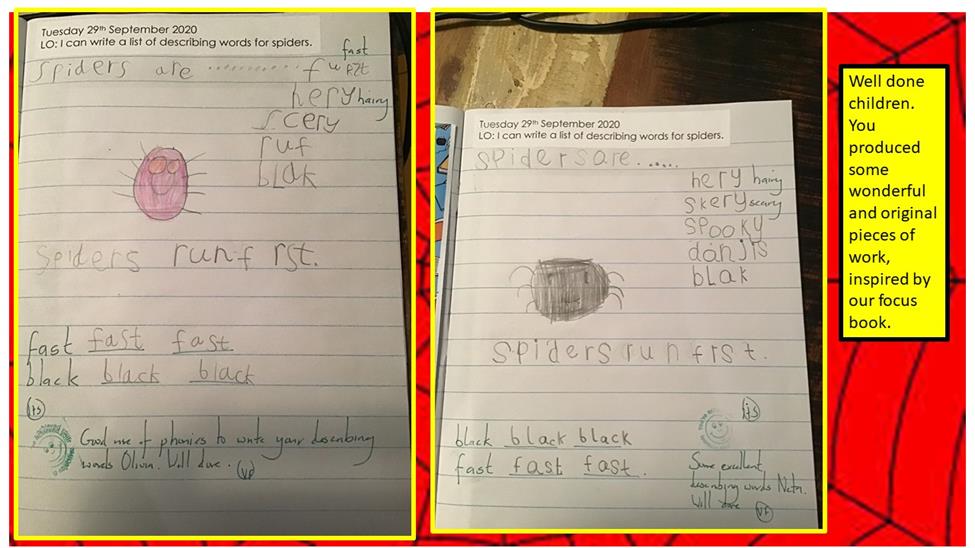 Tuesday 29th September 2020
LO: I can write a list of describing words for spiders.
fast
spiders are ...........
hery hairy
scery
ruf
blak
spiders run f rst.
fast fast fast
black black black
Good use of phonics to write your describing
words Olivia. Well done. VF
Tuesday 29th September 2020
LO: I can write a list of describing words for spiders.
spiders are .....
hery hairy
skery scary
spooky
danjis
blak
spiders run frst.
black black black
fast fast fast.
Some excellent
describing words
Well done VF
Well done
children.
You
produced
some
wonderful
and original
pieces of
work,
inspired by
our focus
book.